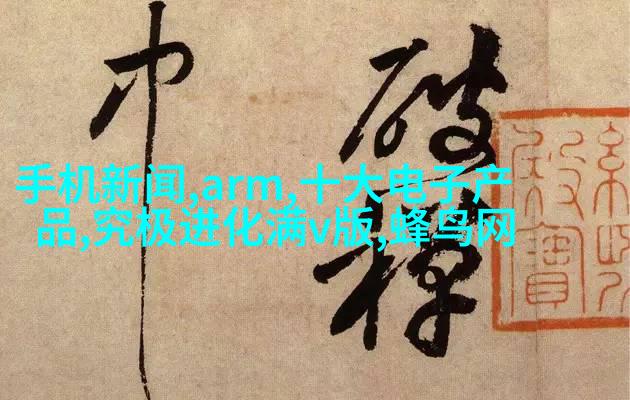 手机新闻,arm,十大电子产
品,究极进化满v版,蜂鸟网
破
巾